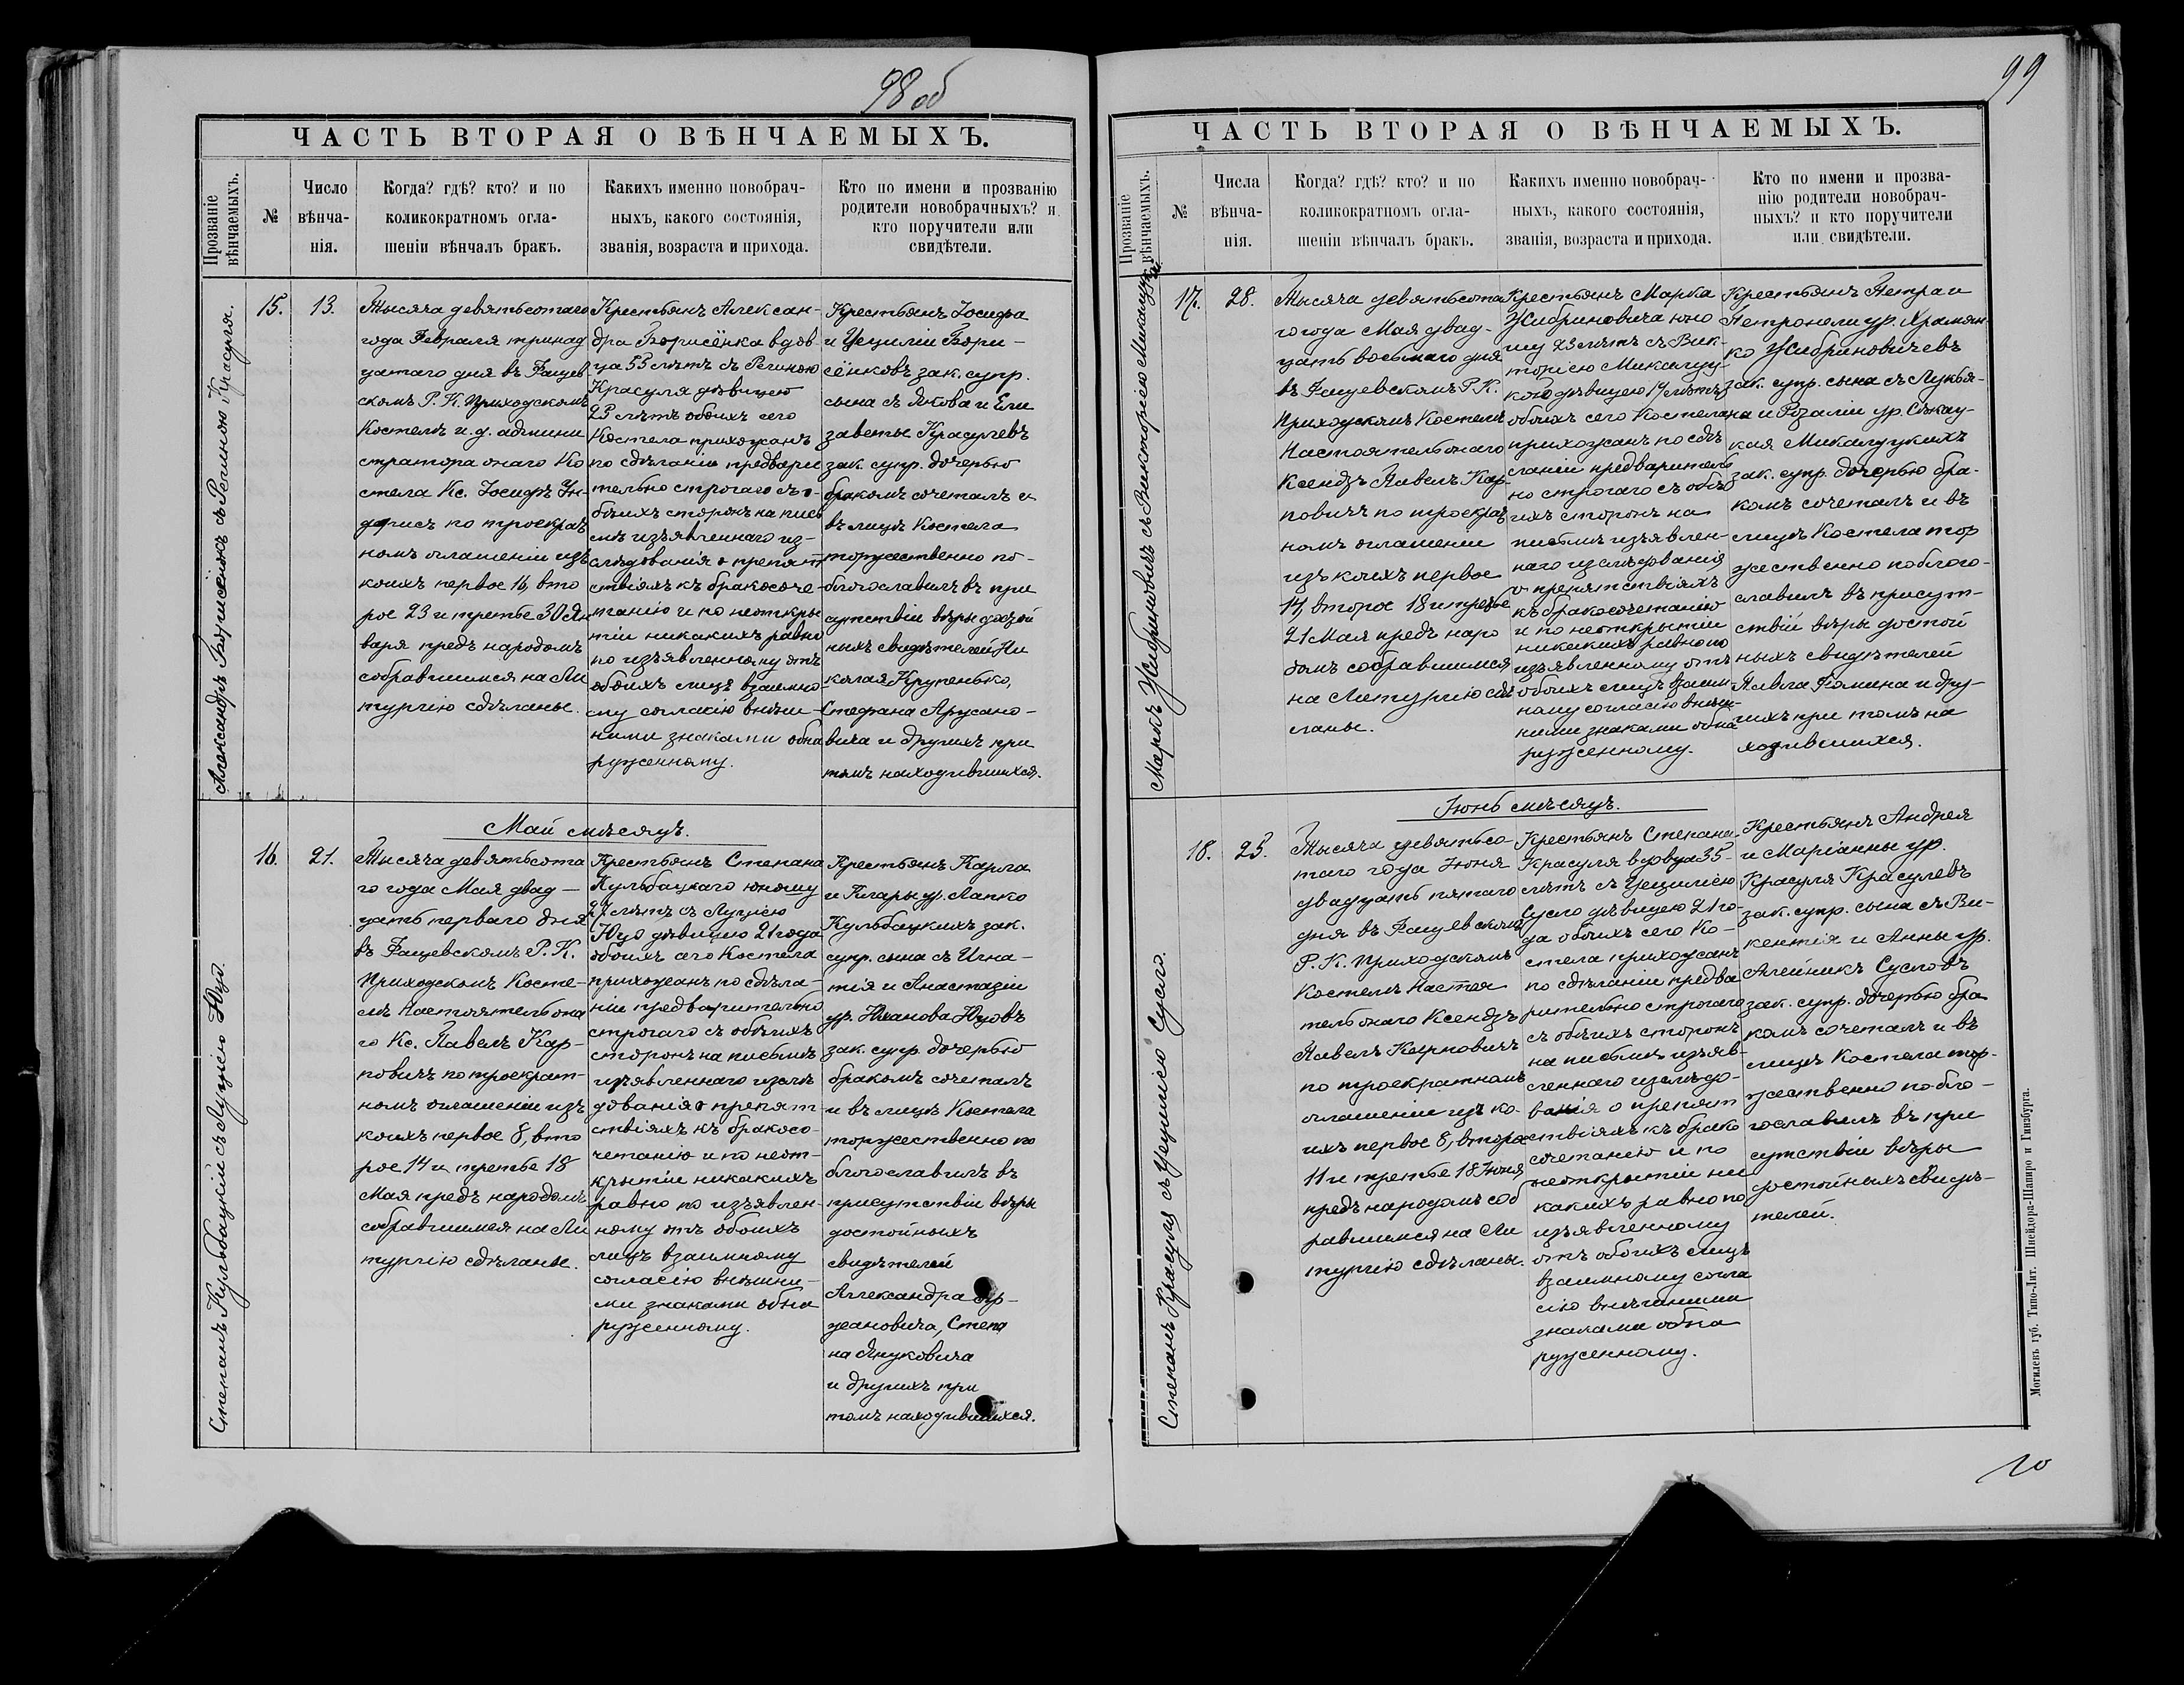 98 об
ЧАСТЬ ВТОРАЯ О ВѢНЧАЕМЫХЪ.
Прозваніе
вѣнчаемыхъ.
№
Число
вѣнча-
нія.
Когда? гдѣ? кто? и по
коликократномъ огла-
шеніи вѣнчалъ бракъ.
Какихъ именно новобрач-
ныхъ, какого состоянія,
званія, возраста и прихода.
Кто по имени и прозванію
родители новобрачныхъ? и
кто поручители или
свидѣтели.
Александръ Борисёнокъ съ Региною Красуля.
15.
13.
Тысяча девятьсотаго
года Февраля тринад
цатаго дня въ Фащев-
скомъ Р. К. Приходскомъ
Костелѣ и. д. админи
стратора онаго Ко
стела Кс. Іосифъ
по троекрат
номъ оглашеніи изъ
коихъ первое 16, вто
рое 23 и третье 30 Ян
варя предъ народомъ
собравшимся на Ли
тургію сдѣланье.
Крестьянъ Алексан-
дра Борисёнка вдов-
ца 53 лѣтъ съ Региною
Красуля дѣвицею
23 лѣтъ обоихъ сего
Костела прихожанъ
по сдѣланіи предвари
тельно строгаго съ о-
бѣихъ сторонъ на пись
мѣ изъявленнаго из-
слѣдованія о препят
ствіяхъ къ бракосоче-
танію и по неоткры
тіи никакихъ равно
по изъявленному отъ
обоихъ лицъ взаимно-
му согласію внѣш-
ними знаками обна
руженному.
Крестьянъ Іосифа
и Цециліи Бори-
сёнковъ зак. супр.
сына съ Якова и Ели
заветы Красулевъ
зак. супр. дочерью
бракомъ сочеталъ и
въ лицѣ Костела
торжественно по-
благославилъ въ при
сутствіи вѣры достой
ныхъ свидѣтелей Ни
колая Крупенько,
Стефана Арусано-
вича и другихъ при
томъ находившихся.
Май мѣсяцъ.
Степанъ Кульбацкій съ Луціею Юцо.
16.
21.
Тысяча девятьсота
го года Мая двад-
цать перваго дня
въ Фащевскомъ Р. К.
Приходскомъ Косте-
лѣ Настоятель она
го Кс. Павелъ Кар-
повичъ по троекрат-
номъ оглашеніи изъ
коихъ первое 8, вто
рое 14 и третье 18
Мая предъ народомъ
собравшимся на Ли
тургію сдѣланье.
Крестьянъ Степана
Кульбацкаго юношу
лѣтъ съ Луціею
Юцо дѣвицею 21 года
обоихъ сего Костела
прихожанъ по сдѣла-
ніи предварительно
строгаго съ обѣихъ
сторонъ на письмѣ
изъявленнаго изслѣ
дованія о препят
ствіяхъ къ бракосо-
четанію и по неот-
крытіи никакихъ
равно по изъявлен-
ному отъ обоихъ
лицъ взаимному
согласію внѣшни-
ми знаками обна
руженному.
Крестьянъ Карла
и Клары ур. Лапко
Кульбацкихъ зак.
супр. сына съ Игна-
тія и Анастазіи
ур. Юцовъ
зак. супр. дочерью
бракомъ сочеталъ
и въ лицѣ Костела
торжественно по
благославилъ въ
присутствіи вѣры
достойныхъ
свидѣтелей
Александра
Степа
на Януковича
и другихъ при
томъ находившихся.
99
ЧАСТЬ ВТОРАЯ О ВѢНЧАЕМЫХЪ.
Прозваніе
вѣнчаемыхъ.
№
Числа
вѣнча-
нія.
Когда? гдѣ? кто? и по
коликократномъ огла-
шеніи вѣнчалъ бракъ.
Какихъ именно новобрач-
ныхъ, какого состоянія,
званія, возраста и прихода.
Кто по имени и прозва-
нію родители новобрач-
ныхъ? и кто поручители
или свидѣтели.
Маркъ Жибриновичъ съ Викторіею Микалуцкой
17.
28.
Тысяча девятьсота
го года Мая двад-
цать восьмаго дня
въ Фащевскомъ Р. К.
Приходскомъ Костелѣ
Настоятель онаго
Ксендзъ Павелъ Кар-
повичъ по троекрат
номъ оглашеніи
изъ коихъ первое
14, второе 18 и третье
21 Мая предъ наро
домъ собравшимся
на Литургію сдѣ
ланье.
Крестьянъ Марка
Жибриновича юно
шу 23 лѣтъ съ Вик-
торіею Микалуц-
кою дѣвицею 19 лѣтъ
обоихъ сего Костела
прихожанъ по сдѣ
ланіи предваритель
но строгаго съ обѣ
ихъ сторонъ на
письмѣ изъявлен-
наго изслѣдованія
о препятствіяхъ
къ бракосочетанію
и по неоткрытіи
никакихъ равно по
изъявленному отъ
обоихъ лицъ взаим-
ному согласію внѣш-
ними знаками обна
руженному.
Крестьянъ Петра и
Петронели ур. Храмян-
ко Жибриновичевъ
зак. супр. сына съ Лукья-
на и Розаліи ур.
кая Микалуцкихъ
зак. супр. дочерью бра-
комъ сочеталъ и въ
лицѣ Костела тор
жественно поблаго-
славилъ въ присут-
ствіи вѣры достой
ныхъ свидѣтелей
Павла Фомина и дру-
гихъ при томъ на
ходившихся.
Іюнь мѣсяцъ.
Степанъ Красуля съ Цециліею Сусло.
18.
25.
Тысяча девятьсо-
таго года Іюня
двадцать пятаго
дня въ Фащевскомъ
Р. К. Приходскомъ
Костелѣ Настоя
тель онаго Ксендзъ
Павелъ Карповичъ
по троекратномъ
оглашеніи изъ ко-
ихъ первое 8, второе
11 и третье 18 Іюня
предъ народомъ соб
равшимся на Ли
тургію сдѣланье.
Крестьянъ Степана
Красуля вдовца 35-
лѣтъ съ Цециліею
Сусло дѣвицею 21 го-
да обоихъ сего Ко-
стела прихожанъ
по сдѣланіи предва
рительно строгаго
съ обѣихъ сторонъ
на письмѣ изъяв-
леннаго изслѣдо-
ванія о препят
ствіяхъ къ брако
сочетанію и по
неоткрытіи ни
какихъ равно по
изъявленному
отъ обоихъ лицъ
взаимному согла
сію внѣшними
знаками обна
руженному.
Крестьянъ Андрея
и Маріанны ур.
Красуля Красулевъ
зак. супр. сына съ Ви-
кентія и Анны ур.
Алейникъ Сусловъ
зак. супр. дочерью бра
комъ сочеталъ и въ
лицѣ Костела тор-
жественно побла-
гославилъ въ при
сутствіи вѣры
достойныхъ свидѣ-
телей.
Могилевъ губ. Типо-Лит. Шнейдора-Шапиро и Гинзбурга.